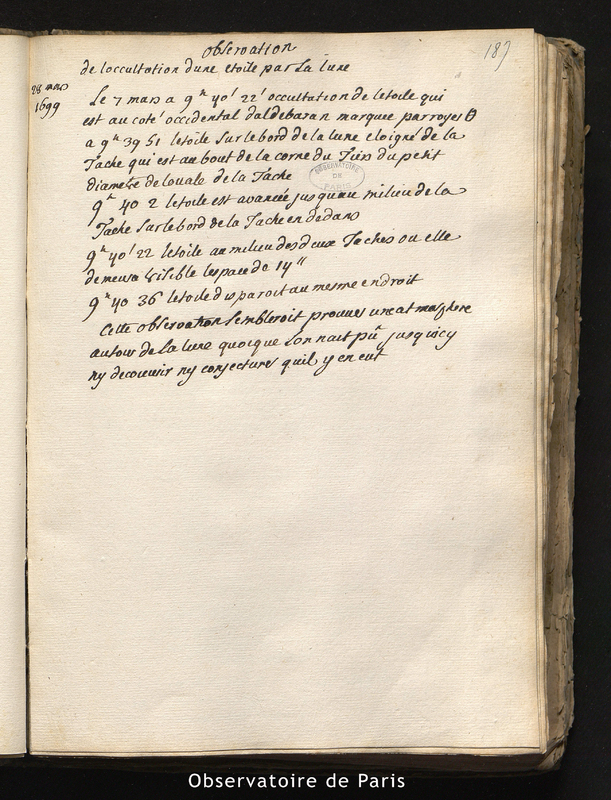 189
observation
de loccultation dune etoile par La lune
28 mars
1699
Le 7 mars a 9h 40' 22' occultation de letoile qui
est au coté occidental daldebaran marquée par royer θ
a 9h 39 51 letoile sur le bord de la lune eloigné de la
Tache qui est au bout de la corne du Tiers du petit
diametre de louale de la Tache
9h 40 2 letoile est avancée jusquau milieu de la
Tache sur le bord de la Tache en dedans
9h 40' 22 letoile au milieu des deux Taches ou elle
demeura visible lespace de 14"
9h 40 36 letoile disparoit au mesme endroit
Cette observation sembleroit prouuer une atmosphere
autour de La lune quoique Lon nait pû jusquicy
ny decouurir ny conjecturer quil y en eut
OBSERVATOIRE
DE
PARIS
Observatoire de Paris